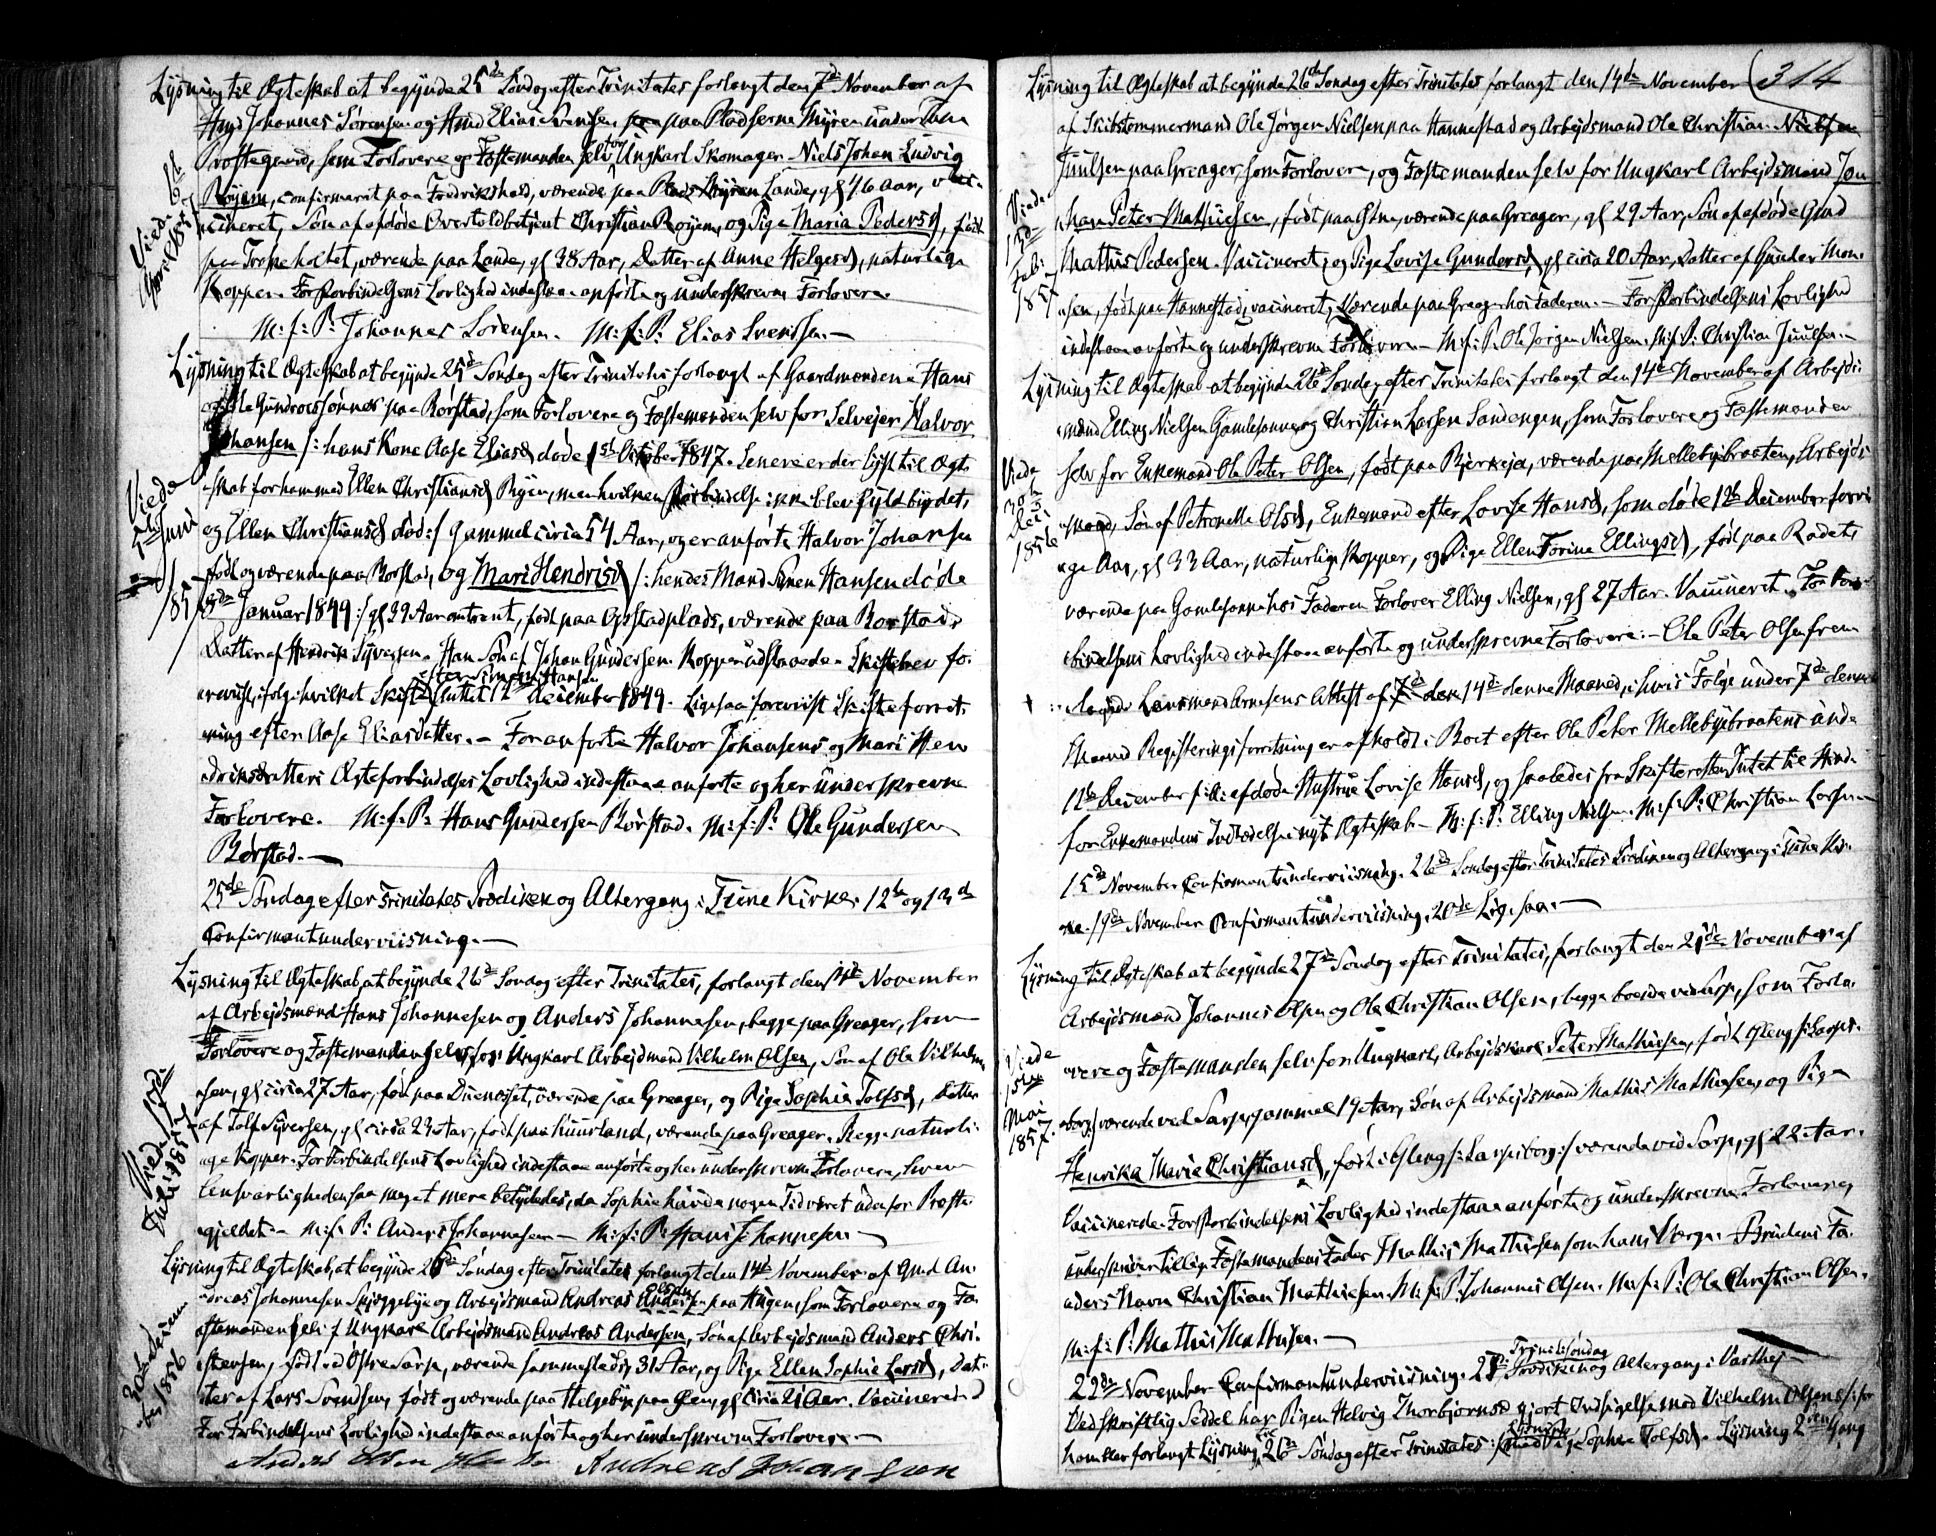 Lysning til Ægteskab at begynde 25de Søndag efter Trinitates forlangt den 7de November af
Gmd Johannes Sørensen og Hmd Elias Svensen paa Pladserne Myren under Tune
Præstegaard, som Forlovere og Fæstemanden selv for Ungkarl Skomager Niels Johan Ludvig
Røyem, confirmeret paa Fredrikshald, værende paa Lande, gl 46 Aar, vac-
cineret, Søn af afdøde Overtoldbetjent Christian Røyem, og Pige Maria Pedersd, født
paa Troppeholtet, værende paa Lande, gl 38 Aar, Datter af Anne Helgesd, naturlige
Kopper. For Forbindelsens Lovlighed indestaae anførte og underskrevne Forlovere.
M: f: P: Johannes Sørensen. M: f: P: Elias Svensen.
Viede 6te April 1857
Lysning til Ægteskab at begynde 25de Søndag efter Trinitates forlangt af Gaardmændene Hans
og Ole Gundersønner paa Borstad, som Forlovere og Fæstemanden selv for Selvejer Halvor
Johansen /: hans Kone Aase Eliasd døde 1ste October 1847. Senere er der lyst til Ægte-
skab for ham med Ellen Christiansd Ryen, men hvilken Forbindelse ikke blev fyldbyrdet,
og Ellen Christiansd død :/ gammel circa 54 Aar, og er anførte Halvor Johansen
født og værende paa Borstad, og Mari Hendrisd /: hendes Mand Simen Hansen døde
8de Januar 1849 :/ gl 39 Aar omtrent, født paa Opstadplads, værende paa Borstad,
Datter af Hendrik Syversen. Han Søn af Johan Gundersen. Kopper udstaaede. Skiftebrev fo-
reviist, ifølge hvilket Skiftet efter Simen Hansen sluttet 12te December 1849. Ligesaa foreviist Skifteforret-
ning efter Aase Eliasdatter. - For anførte Halvor Johansens og Mari Hen
driksdatters Ægteforbindelses Lovlighed indestaae anførte og her underskrevne
Forlovere. M: f: P: Hans Gundersen Borstad. M: f: P: Ole Gundersen
Borstad.
Viede Juni 1857
25de Søndag efter Trinitates Prædiken og Altergang i Tune Kirke. 12te og 13de
Confirmantunderviisning.
Lysning til Ægteskab, at begynde 26de Søndag efter Trinitates, forlangt den 14de November
af Arbejdsmænd Hans Johannesen og Anders Johannesen, begge paa Greager, som
Forlovere og Fæstemanden selv for Ungkarl Arbejdsmand Vilhelm Olsen, Søn af Ole Vilhelm-
sen, gl circa 27 Aar, født paa Duenæset, værende paa Greager, og Pige Sophie Tolfsd, Datter
af Tolf Syversen, gl circa 23 Aar, født paa Huurland, værende paa Greager. Begge naturli-
ge Kopper. For Forbindelsens Lovlighed indestaae anførte og her underskrevne Forlovere, hven
lensvarligheden saa meget mere betydedes, da Sophie havde nogen Tid været udenfor Præste-
gjeldet. - M: f: P: Anders Johannesen - M: f: P: Hans Johannesen
Lysning til Ægteskab, at begynde 26de Søndag efter Trinitates forlangt den 14de November af Gmd An-
dreas Johannesen Skjøggebye og Arbejdsmand Andreas Olsen paa Haugen, som Forlovere og Fæ-
stemanden selv f Ungkarl Arbejdsmand Andreas Andersen, Søn af Arbejdsmand Anders Chri-
stensen, født ved Østre Sarp, værende sammesteds, 31 Aar, og Pige Ellen Sophie Larsd, Dat-
ter af Lars Svendsen, født og værende paa Helgebye paa Øen, gl circa 21 Aar. Vaccinerede
For Forbindelsens Lovlighed indestaae anførte og her underskrevne Forlovere.
Andreas Johansen
314
Lysning til Ægteskab at begynde 26de Søndag efter Trinitates forlangt den 14de November
af Skibstømmermand Ole Jørgen Nielsen paa Hannestad og Arbejdsmand Ole Christian
Juulsen paa Greager, som Forlovere, og Fæstemanden selv for Ungkarl Arbejdsmand Jo-
han Peter Mathiesen, født paa Glna, værende paa Greager, gl 29 Aar, Søn af afdøde Gmd
Mathis Pedersen. Vaccineret, og Pige Lovise Gundersd, gl circa 20 Aar, Datter af Gunder Mon-
sen, født paa Hannestad, vaccineret, værende paa Greager hos Faderen. - For Forbindelsens Lovlighed
indestaae anførte og underskrevne Forlovere. - M: f: P. Ole Jørgen Nielsen. M: f: P: Christian Juulsen.
Viede 13de Febr 1857
Lysning til Ægteskab at begynde 26de Søndag efter Trinitates forlangt den 14de November af Arbejds-
mænd Elling Nielsen Gamlesanne og Christian Larsen Sandengen, som Forlovere og Fæstemanden
selv for Enkemand Ole Peter Olsen, født paa Bjerkeja, værende paa Mellebybraaten, Arbejds-
mand, Søn af Petronelle Olsd, Enkemand efter Lovise Hansd, som døde 12te December forri-
ge Aar, gl 33 Aar, naturlige Kopper, og Pige Ellen Torine Ellingsd, født paa Rødet,
værende paa Gamlesanne hos Faderen Forlover Elling Nielsen, gl 27 Aar. Vaccineret. For For-
bindelsens Lovlighed indestaae anførte og underskrevne Forlovere. - Ole Peter Olsen frem-
lagde Lensmand Arnesens Attest af 14de denne Maaned, i hvis Følge under 7de denne
Maaned Registeringsforretning er afholdt i Boet efter Ole Peter Mellebybraatens unde
12te December f: A: afdøde Hustrue Lovise Hansd, og saaledes fra Skifteretten Intet til Hind-
for Enkemandens Indtrædelse i nyt Ægteskab - M: f: P: Elling Nielsen. M: f: P: Christian Larsen
Viede 30te Dec 1856
15de November Confirmantunderviisning. 26de Søndag efter Trinitates Prædiken og Altergang i Tune Kir-
ke. 19de November Confirmantunderviisning. 20de Ligesaa.
Lysning til Ægteskab at begynde 27de Søndag efter Trinitates, forlangt den 21de November af
Arbejdsmænd Johannes Olsen og Ole Christian Olsen, begge boende ved Sarp, som Forlo-
vere og Fæstemanden selv for Ungkarl, Arbejdskarl Peter Mathiesen, født i Glenge /: Sarps-
borg :/ værende ved Sarp, gammel 19 Aar, Søn af Arbejdsmand Mathis Mathiesen, og Pige
Henrika Marie Christiansd, født i Glenge /: Sarpsborg :/ værende ved Sarp, gl 22 Aar.
Vaccinerede. For Forbindelsens Lovlighed indestaae anførte og underskrevne Forlovere, og
underskriver tillige Fæstemandens Fader Mathis Mathiesen som hans Værge. Brudens Fa-
ders Navn Christian Mathiesen. M: f: P: Johannes Olsen. M: f: P: Ole Christian Olsen.
M: f: P: Mathis Mathiesen.
Viede Mai 1857.
22de November Confirmantunderviisning. Trinit: Søndag Prædiken og Altergang i Varteig
Ved skriftlig Seddel har Pigen Helvig Thorbjørnsd gjort Indsigelse mod Vilhelm Olsens /: for
ham er forlangt Lysning til 26de Søndag efter Trinitates :/ Lysning med Pige Sophie Tolfsd. Lysning 2den Gang